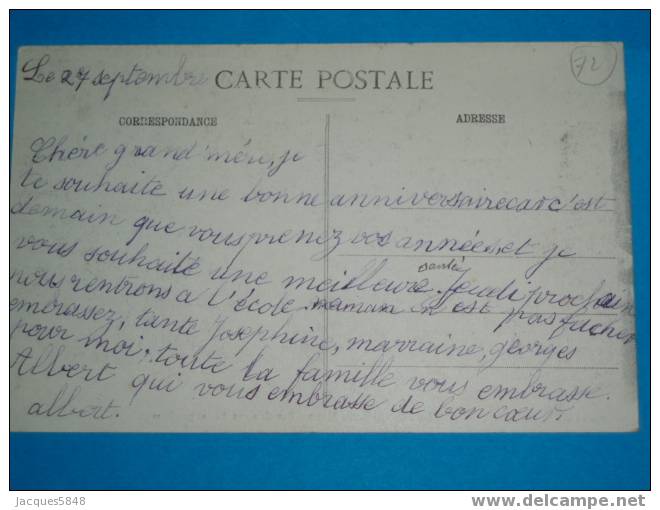 Le 27 septembre
CARTE POSTALE
72
CORRESPONDANCE
ADRESSE
Chère grand'mère, je
te souhaite une bonne anniversaire car c'est
demain que vous prenez vos années, et je
vous souhaite une meilleure santé. Jeudi prochain
nous rentrons a l'école maman n'est pas facher
embrassez, tante Josephine, marraine, georges
pour moi, toute la famille vous embrasse.
Albert qui vous embrasse de bon cœur.
albert.
Jacques5848
delcampe.net